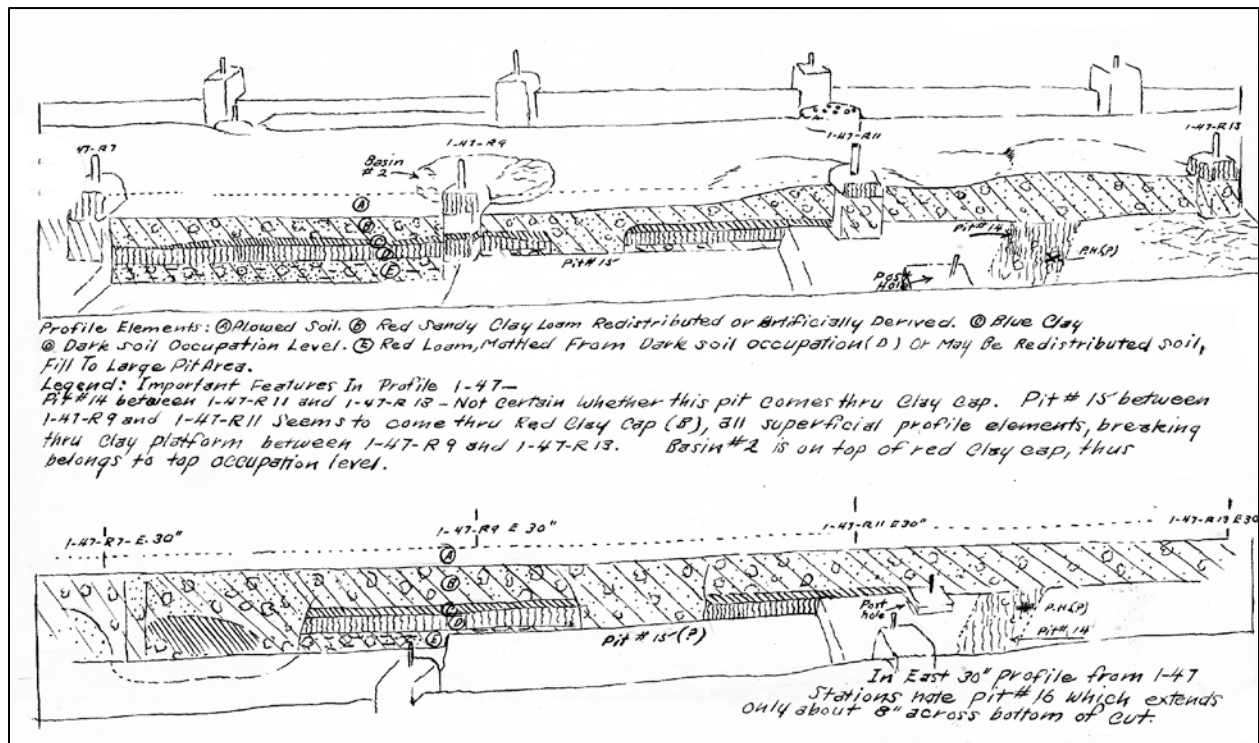 47-R7
Basin
#2
1-47-R9
1-47-R11
1-47-R13
A
B
C
D
E
Pit #15
Pit #14
P.H.(P)
Post
Hole
Profile Elements: Ⓐ Plowed Soil. Ⓑ Red Sandy Clay Loam Redistributed or Artificially Derived. Ⓒ Blue Clay
Ⓓ Dark Soil Occupation Level. Ⓔ Red Loam, Mottled From Dark soil occupation (D) Or May Be Redistributed soil,
Fill To Large Pit Area.
Legend: Important Features In Profile 1-47-
Pit #14 between 1-47-R11 and 1-47-R13 - Not Certain whether this pit comes thru Clay Cap. Pit #15 between
1-47-R9 and 1-47-R11 Seems to come thru Red Clay Cap (B), all superficial profile elements, breaking
thru Clay platform between 1-47-R9 and 1-47-R13. Basin #2 is on top of red Clay cap, thus
belongs to top occupation level.
1-47-R7-E.30"
1-47-R9 E 30"
1-47-R11 E30"
1-47-R13 E30
A
B
C
D
E
Pit #15 (P)
Post
hole
P.H.(P)
Pit#.14
In East 30" profile from 1-47
Stations note pit #16 which extends
only about 8" across bottom of cut.